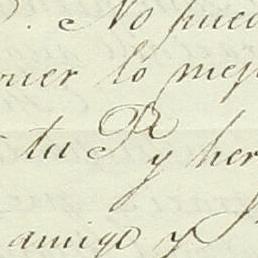 . No pued
oner lo mej
tu P. y her
amigo y